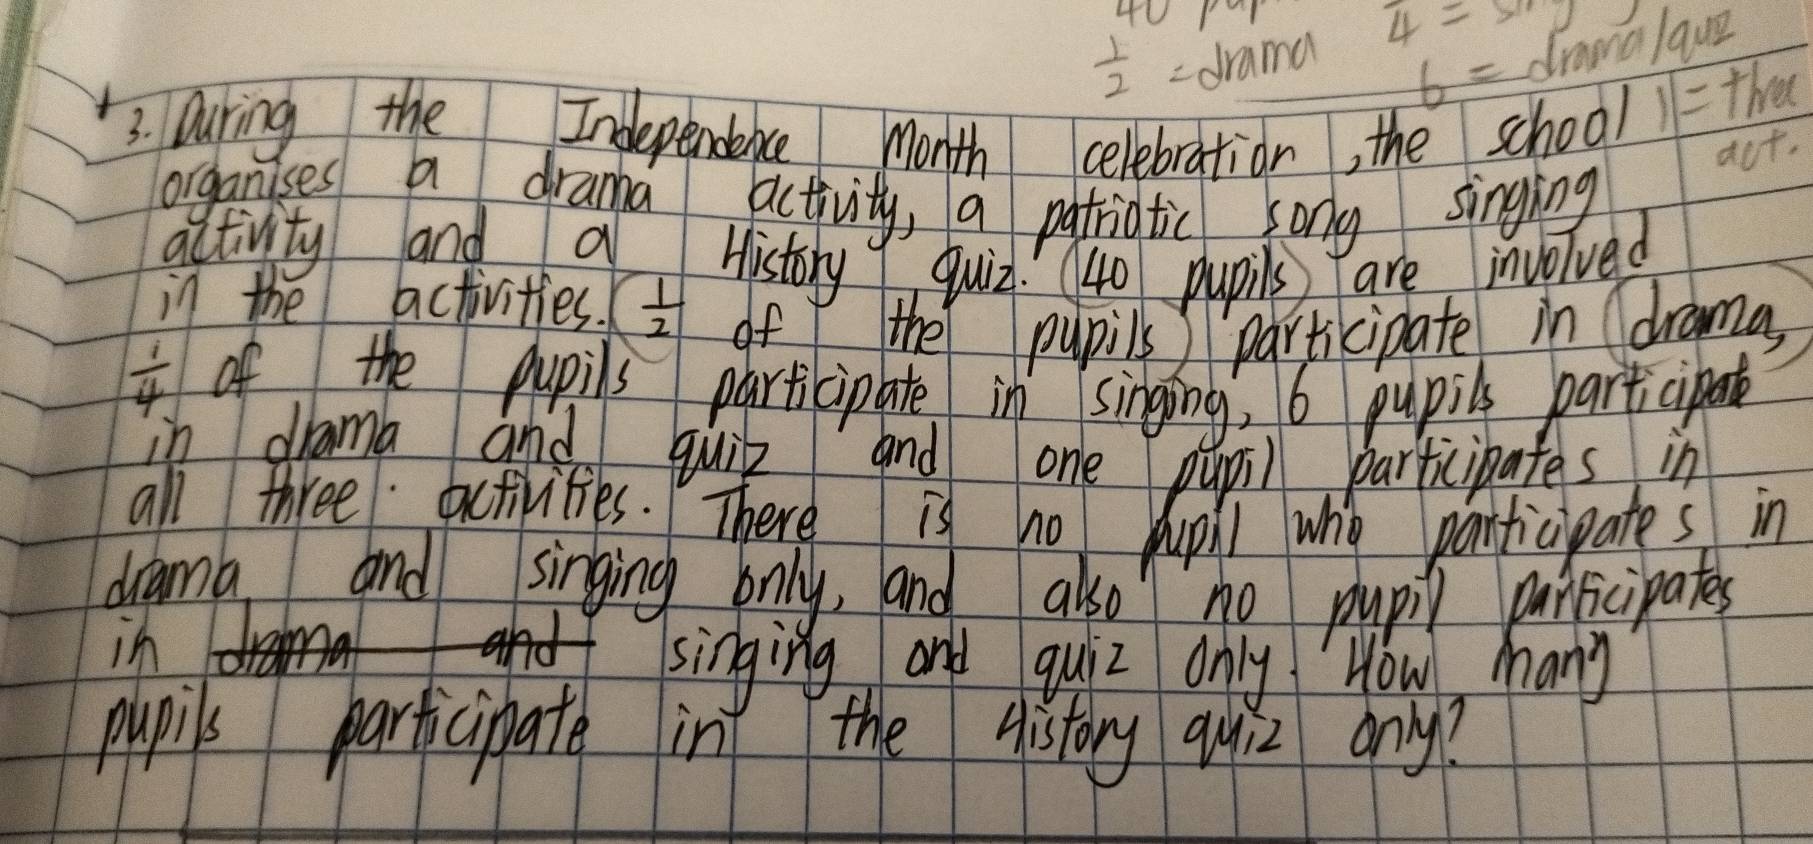 1/2 = drama
1/4 =
6 = drama/quiz
3. During the Independence Month celebration, the school
1 = three
act.
organises a drama activity, a patriotic song singing
activity and a History quiz. 40 pupils are involved
in the activities. 1/2 of the pupils participate in drama,
1/4 of the pupils participate in singing, 6 pupils participate
in drama and quiz and one pupil participates in
all three activities. There is no pupil who participates in
drama and singing only, and also no pupil participates
in drama and singing and quiz only. How many
pupils participate in the History quiz only?